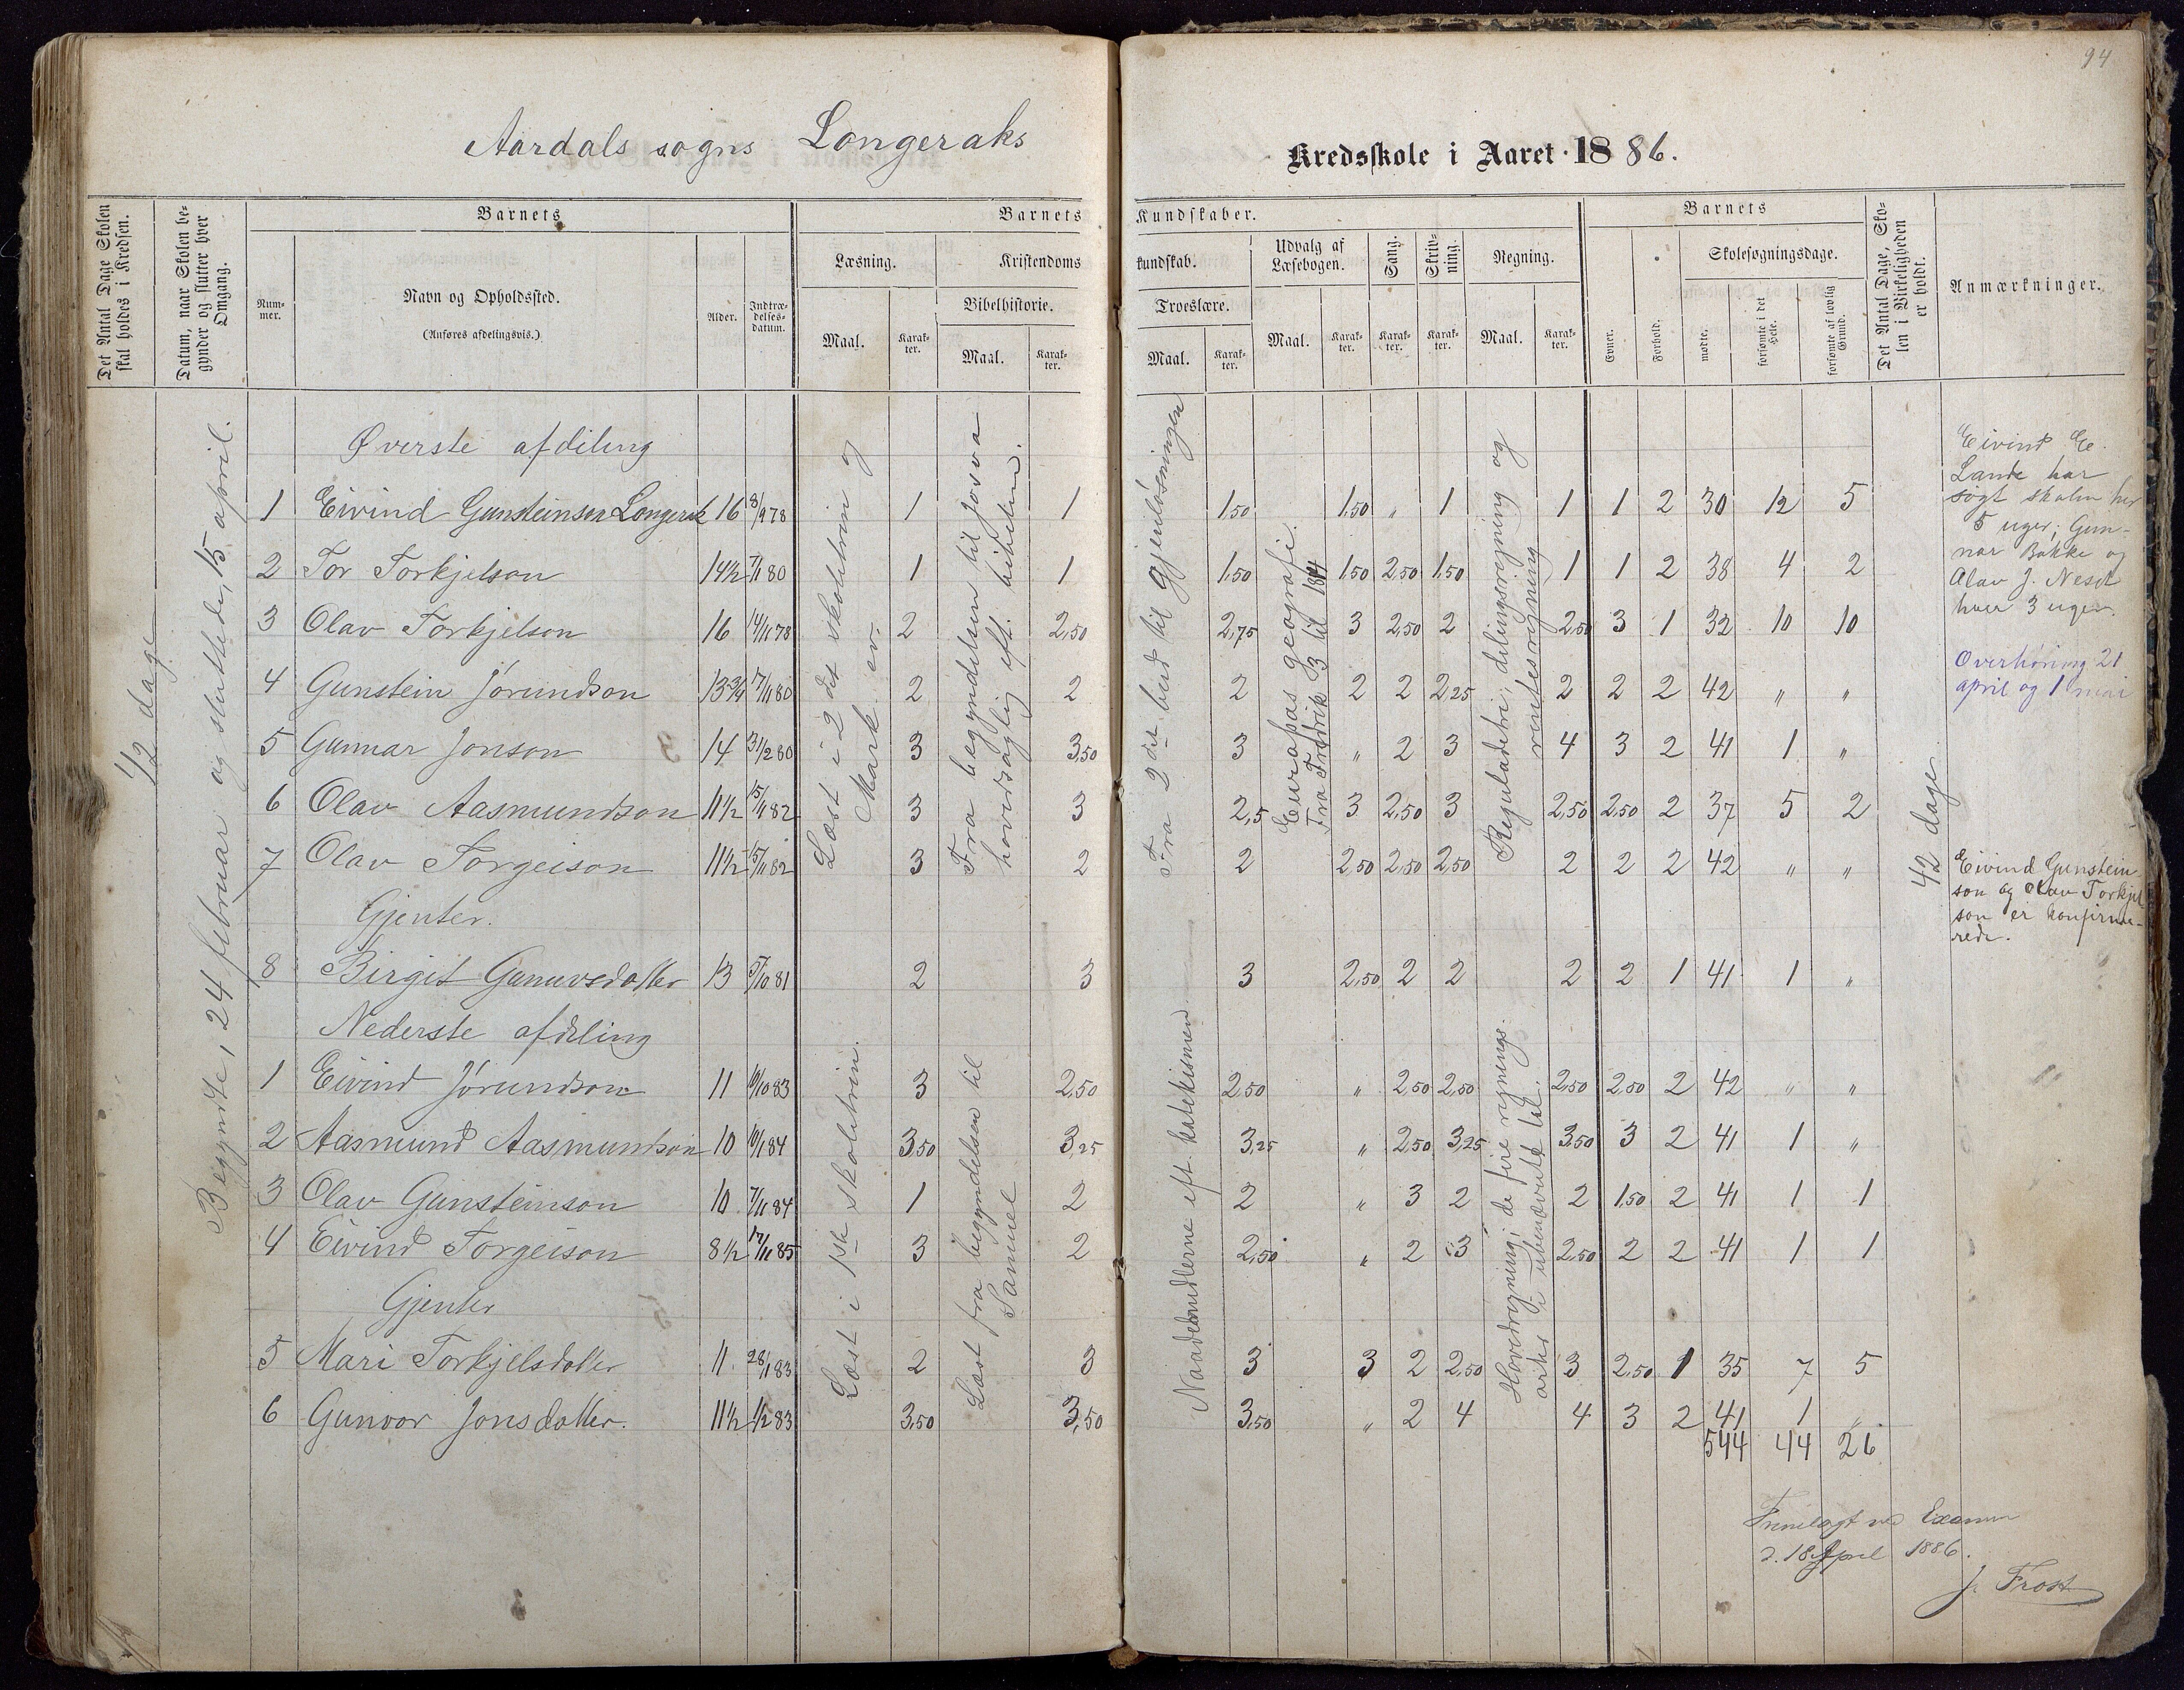 94
Aardals sogns Longeraks Kredsskole i Aaret 1886.
Det Antal Dage Skolen skal holdes i Kredsen.
Datum, naar Skolen begynder og slutter hver Omgang.
Barnets
Nummer.
Navn og Opholdssted.
(Anføres afdelingsvis.)
Alder.
Indtrædelsesdatum.
Barnets Kundskaber.
Læsning.
Maal.
Karakter.
Kristendomskundskab.
Bibelhistorie.
Maal.
Karakter.
Troeslære.
Maal.
Karakter.
Udvalg af Læsebogen.
Maal.
Karakter.
Sang.
Karakter.
Skrivning.
Karakter.
Regning.
Maal.
Karakter.
Barnets
Evner.
Forhold.
Skolesøgningsdage.
mødte.
forsømte i det Hele.
forsømte af lovlig Grund.
Det Antal Dage, Skolen i Virkeligheden er holdt.
Anmærkninger.
42 dage
Begyndte, 24 februar og sluttede, 15 april.
Øverste afdeling
1 Eivind Gunsteinson Longerak 16 8/9 78 1 1 1,50 1,50 „ 1 1 1 2 30 12 5
2 Tor Torkjelson 14½ 7/1 80 1 1 1,50 1,50 2,50 1,50 1 1 2 38 4 2
3 Olav Torkjelson 16 14/11 78 2 2,50 2,75 3 2,50 2 2,50 3 1 32 10 10
4 Gunstein Jørundson 13¾ 17/11 80 2 2 2 2 2 2,25 2 2 2 42 „ „
5 Gunnar Jonson 14 31/2 80 3 3,50 3 „ 2 3 4 3 2 41 1 „
6 Olav Aasmundson 11½ 15/11 82 3 3 2,5 3 2,50 3 2,50 2,50 2 37 5 2
7 Olav Torgeison 11½ 15/11 82 3 2 2 2,50 2,50 2,50 2 2 2 42 „ „
Gjenter.
8 Birgit Gunuvsdotter 13 5/10 81 2 3 3 2,50 2 2 2 2 1 41 1 „
Nederste afdeling
1 Eivind Jørundson 11 10/10 83 3 2,50 2,50 „ 2,50 2,50 2,50 2,50 2 42 „ „
2 Aasmund Aasmundson 10 10/1 84 3,50 3,25 3,25 „ 2,50 3,25 3,50 3 2 41 1 „
3 Olav Gunsteinson 10 7/11 84 1 2 2 „ 3 2 2 1,50 2 41 1 1
4 Eivind Torgeison 8½ 17/11 85 3 2 2,50 „ 2 3 2,50 2 2 41 1 1
Gjenter
5 Mari Torkjelsdotter 11 28/1 83 2 3 3 3 2 2,50 3 2,50 1 35 7 5
6 Gunvor Jonsdotter. 11½ 1/2 83 3,50 3,50 3,50 „ 2 4 4 3 2 41 1 „
544 44 26
Læst i 2 det skoletrin og
Mark. ev.
Fra begyndelsen til Josva
hovedsaglig eft. bibelen.
Fra 2 det bud til Gjenløsningen
Europas geografi.
Fra Fredrik 3 til 1814
Reguladetri, delingsregning og
rentesregning
Læst i 1ste skoletrin.
Læst fra begyndelsen til
Samuel
Naademidlerne eft. katekismen
Hovedregning; de fire regnings-
arter i ubenævnte tal.
42 dage
Eivind Ee.
Lande har
søgt skolen her
5 uger; Gun-
nar Bakke og
Olav J. Nesdt
hver 3 uger.
Overhøring 21
april og 1 mai
Eivind Gunstein-
son og Olav Torkjel
son er konfirme-
rede.
Fremlagt ved Examen
d. 18 April 1886.
J. Frost